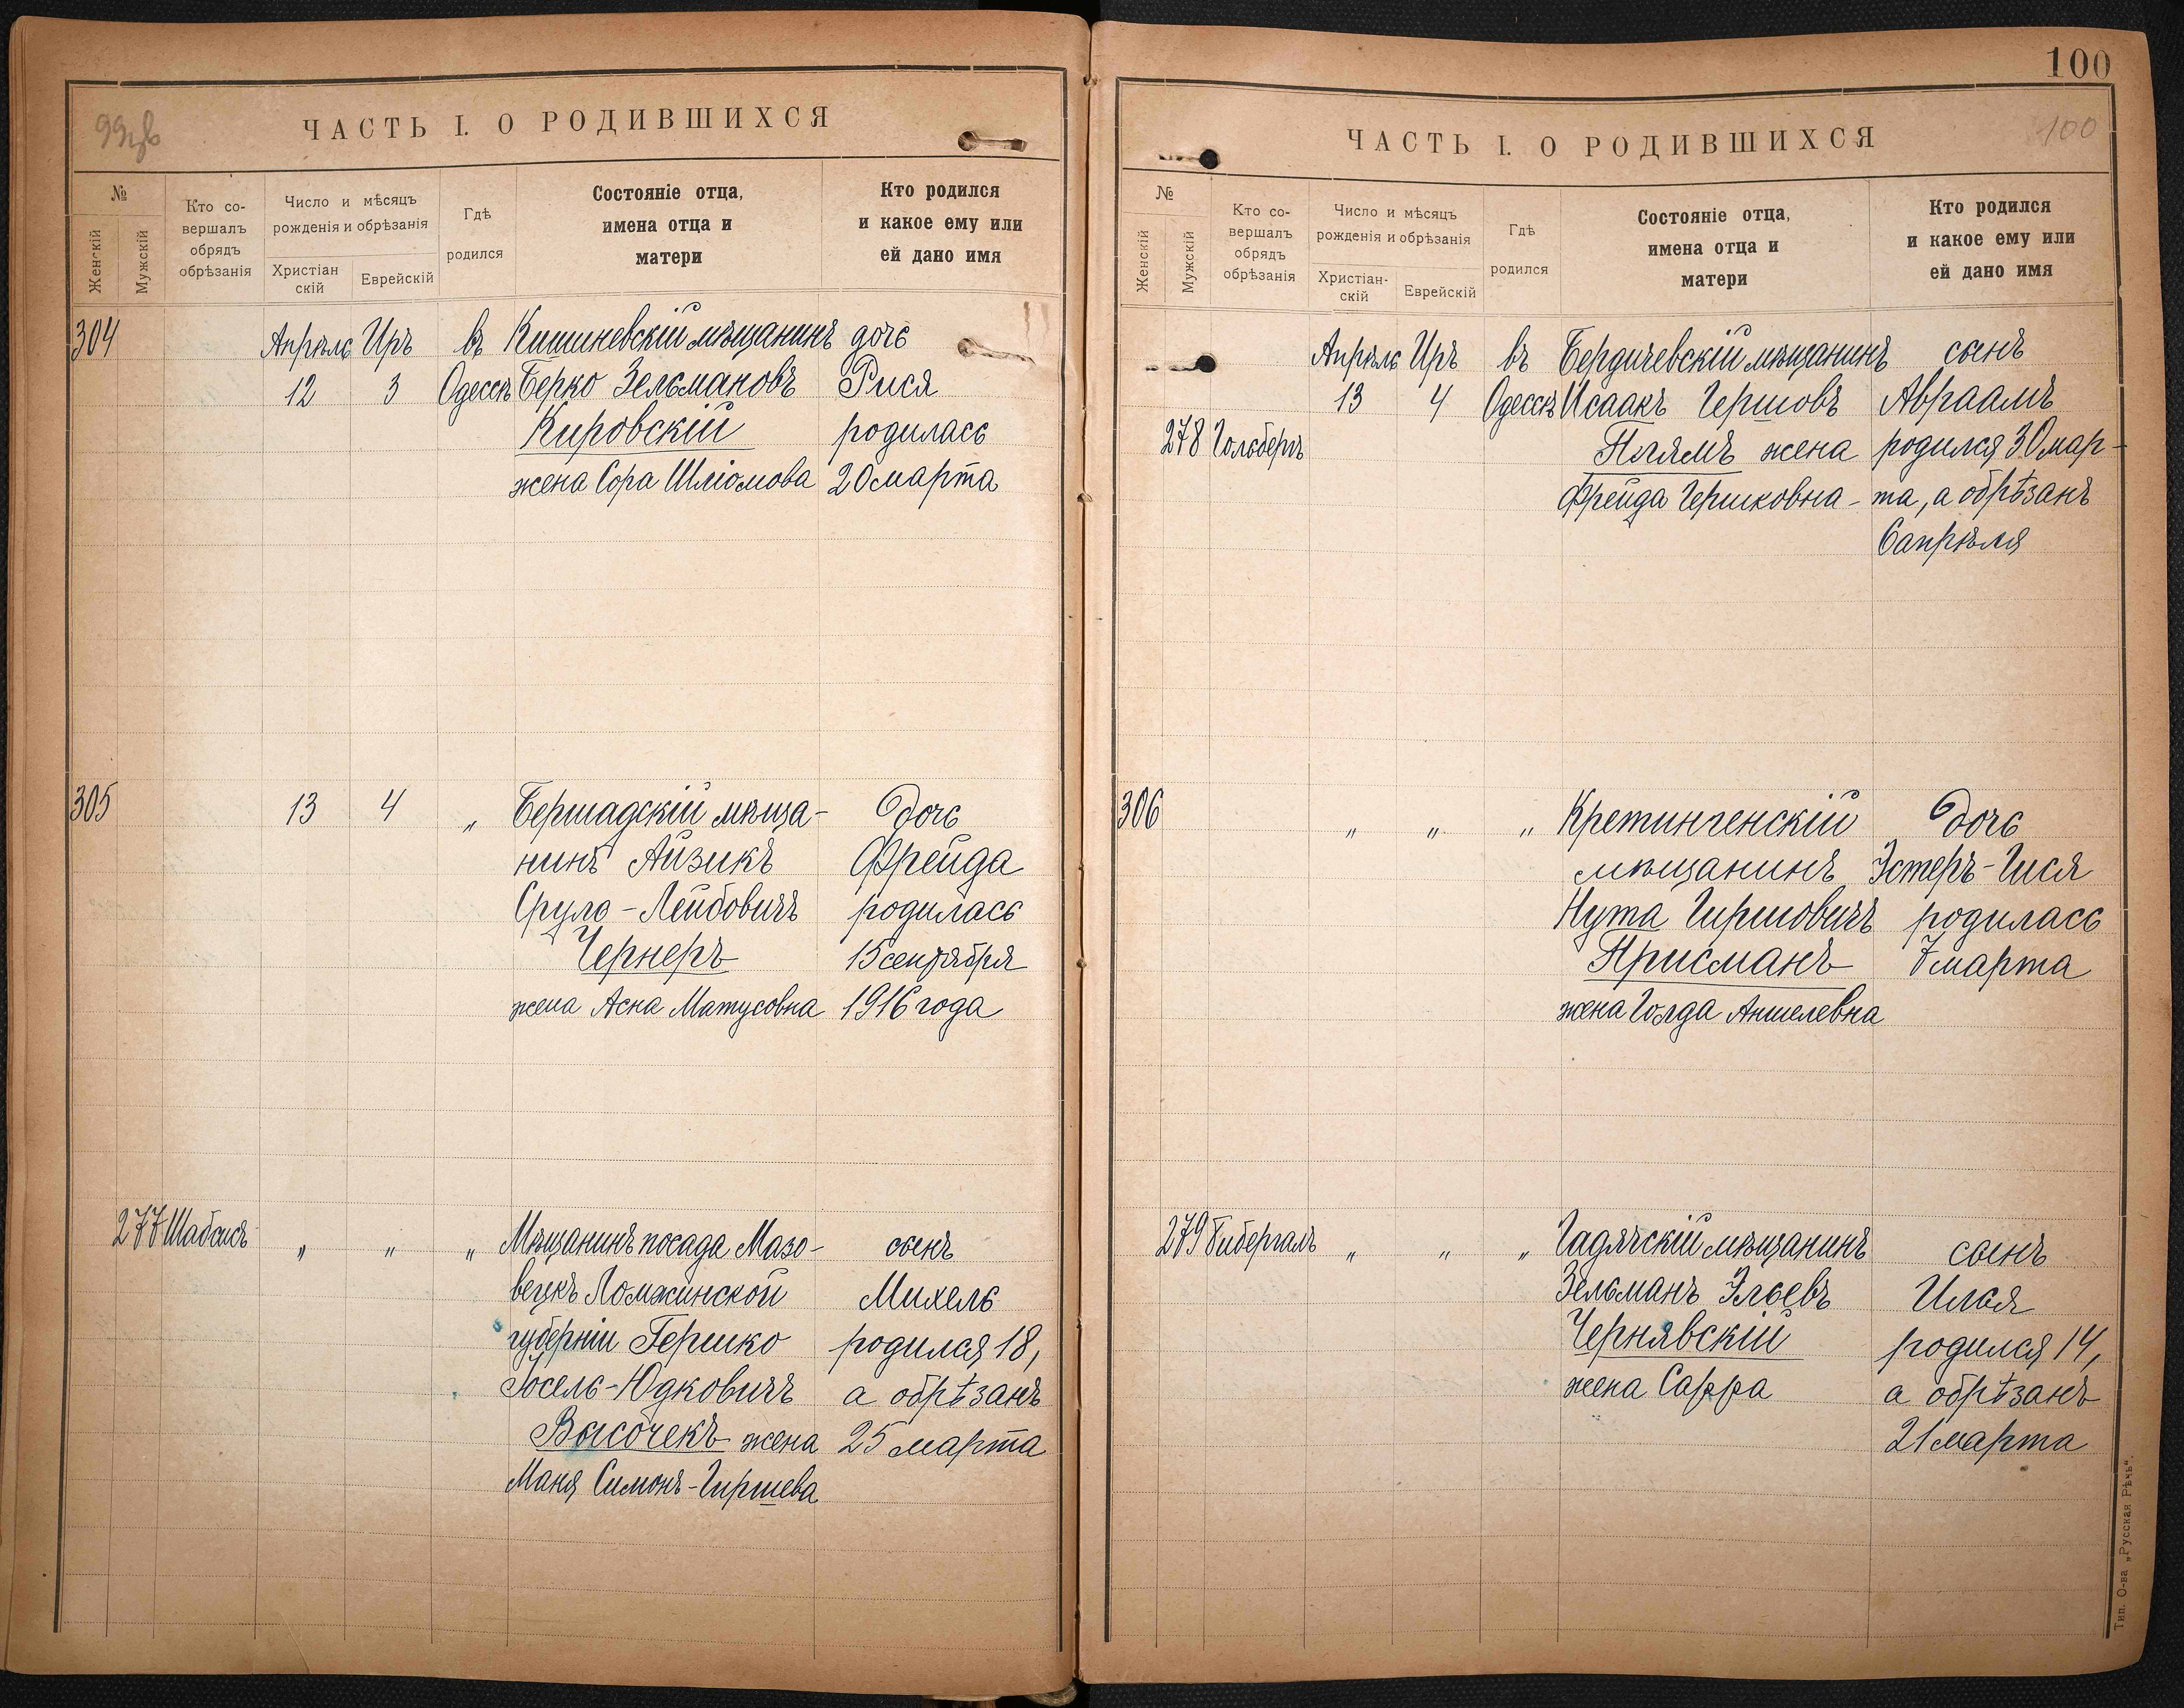 99об
ЧАСТЬ I. О РОДИВШИХСЯ
№
Женскій
Мужскій
Кто со-
вершалъ
обрядъ
обрѣзанія
Число и мѣсяцъ
рожденія и обрѣзанія
Христіан
скій
Еврейскій
Гдѣ
родился
Состояніе отца,
имена отца и
матери
Кто родился
и какое ему или
ей дано имя
304 Апрѣль Иръ въ Кишиневскій мѣщанинъ дочь
12 3 Одессѣ Берко Зельмановъ Рися
Кировскій родилась
жена Сора Шліомова 20 марта
305 13 4 „ Бершадскій мѣща- дочь
нинъ Айзикъ Фрейда
Срулъ-Лейбовичъ родилась
Чернеръ 15 сентября
жена Асна Матусовна 1916 года
277 Шабсисъ „ „ „ Мѣщанинъ посада Мазо- сынъ
вецкъ Ломжинской Михель
губерніи Гершко родился 18,
Іосель-Юдковичъ а обрѣзанъ
Высочекъ жена 25 марта
Маня Симонъ-Гиршева
100
ЧАСТЬ I. О РОДИВШИХСЯ
100
№
Женскій
Мужскій
Кто со-
вершалъ
обрядъ
обрѣзанія
Число и мѣсяцъ
рожденія и обрѣзанія
Христіан-
скій
Еврейскій
Гдѣ
родился
Состояніе отца,
имена отца и
матери
Кто родился
и какое ему или
ей дано имя
Апрѣль Иръ въ Бердичевскій мѣщанинъ сынъ
13 4 Одессѣ Исаакъ Гершовъ Авраамъ
278 Гольбергъ Плямъ жена родился 30 мар-
Фрейда Гершковна - та, а обрѣзанъ
6 апрѣля
306 „ „ „ Кретингенскій дочь
мѣщанинъ Эстеръ-Гися
Нута Гиршовичъ родилась
Присманъ 7 марта
жена Голда Аншелевна
279 Бибергаль „ „ „ Гадячскій мѣщанинъ сынъ
Зельманъ Эльевъ Илья
Чернявскій родился 14,
жена Сарра а обрѣзанъ
21 марта
Тип. О-ва „Русская Рѣчь“.